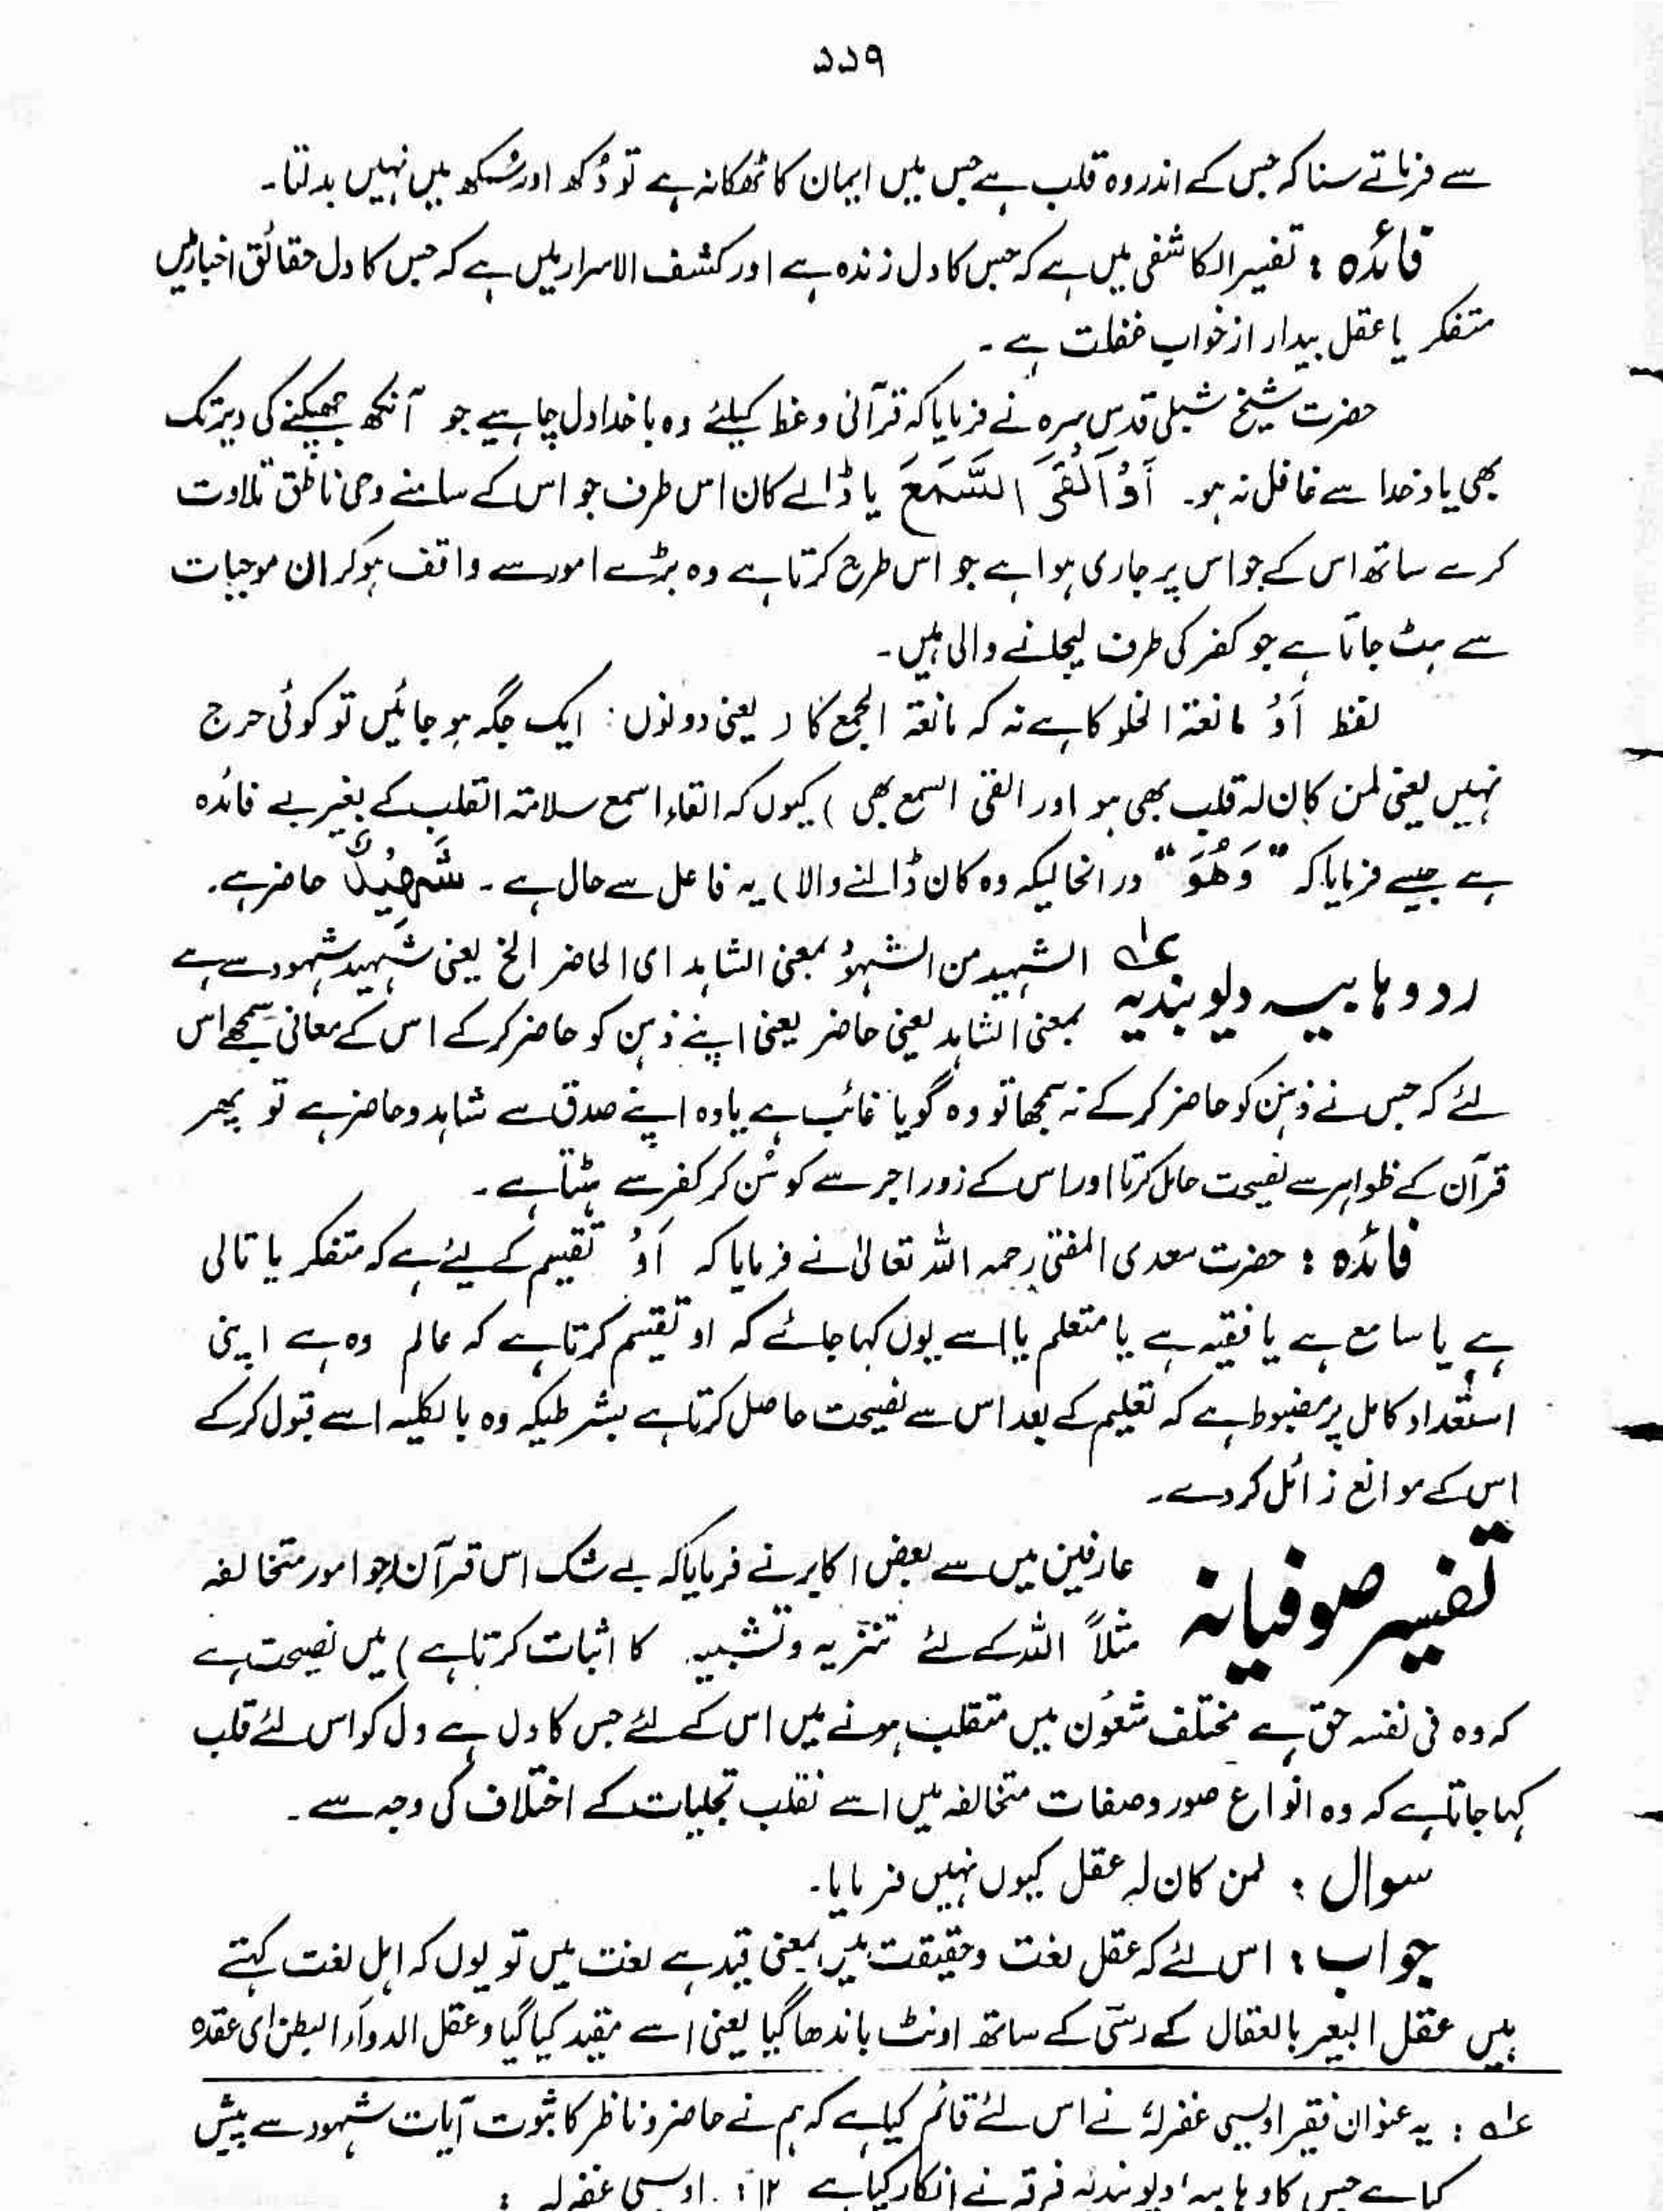 ۵۵۹
سے فرماتے سنا کہ جس کے اندر وہ قلب ہے جس میں ایمان کا ٹھکانہ ہے تو دُکھ اور سُکھ میں نہیں بدلتا۔
فائدہ : تفسیر الکاشفی میں ہے کہ جس کا دل زندہ ہے اور کشف الاسرار میں ہے کہ جس کا دل حقائق اخبار میں
متفکر یا عقل بیدار از خواب غفلت ہے ۔
حضرت شیخ شبلی قدس سرہ نے فرمایا کہ قرآنی وعظ کیلئے وہ باخدا دل چاہیے جو آنکھ جھپکنے کی دیر تک
بھی یاد خدا سے غافل نہ ہو۔ اَوْ اَلْقَی السَّمْعَ یا ڈالے کان اس طرف جو اس کے سامنے وحی ناطق تلاوت
کرے ساتھ اس کے جو اس پر جاری ہوا ہے جو اس طرح کرتا ہے وہ بڑے امور سے واقف ہو کر ان موجبات
سے ہٹ جاتا ہے جو کفر کی طرف لیجانے والی ہیں۔
لفظ اَوْ مانعۃ الخلو کا ہے نہ کہ مانعۃ الجمع کا ( یعنی دونوں : ایک جگہ ہو جائیں تو کوئی حرج
نہیں یعنی لمن کان لہ قلب بھی ہو اور القی السمع بھی ) کیوں کہ القاء اسمع سلامتہ القلب کے بغیر بے فائدہ
ہے جیسے فرمایا کہ "وَھُوَ" درانحالیکہ وہ کان ڈالنے والا ) یہ فاعل سے حال ہے ۔ شَھِیْدٌ حاضر ہے۔
رد وہابیہ دیوبندیہ عـ۱ الشہید من الشہود بمعنی الشاہد ای الحاضر الخ یعنی شہید شہود سے ہے
بمعنی الشاہد یعنی حاضر یعنی اپنے ذہن کو حاضر کرکے اس کے معانی سمجھے اس
لئے کہ جس نے ذہن کو حاضر کر کے نہ سمجھا تو وہ گویا غائب ہے یا وہ اپنے صدق سے شاہد و حاضر ہے تو پھر
قرآن کے ظواہر سے نصیحت حاصل کرتا اور اس کے زور اجر سے کو سُن کر کفر سے ہٹتا ہے ۔
فائدہ : حضرت سعدی المفتی رحمہ اللہ تعالیٰ نے فرمایا کہ اَوْ تقسیم کے لیئے ہے کہ متفکر یا تالی
ہے یا سامع ہے یا فقیہ ہے یا متعلم یا اسے یوں کہا جائے کہ او تقسیم کرتا ہے کہ عالم وہ ہے اپنی
استعداد کامل پر مضبوط ہے کہ تعلیم کے بعد اس سے نصیحت حاصل کرتا ہے بشرطیکہ وہ بالکلیہ اسے قبول کرکے
اس کے موانع زائل کر دے۔
تفسیر صوفیانہ عارفین میں سے بعض اکابر نے فرمایا کہ بے شک اس قرآن (جو امور متخالفہ
مثلاً اللہ کے لئے تنزیہ و تشبیہ کا اثبات کرتا ہے ) میں نصیحت ہے
کہ وہ فی نفسہ حق ہے مختلف شعُون میں متقلب ہونے میں اس کے لئے جس کا دل ہے دل کو اس لئے قلب
کہا جاتا ہے کہ وہ انواع صور و صفات متخالفہ میں اسے تقلب تجلیات کے اختلاف کی وجہ سے ۔
سوال : لمن کان لہ عقل کیوں نہیں فرمایا۔
جواب : اس لئے کہ عقل لغت و حقیقت میں بمعنی قید ہے لغت میں تو یوں کہ اہل لغت کہتے
ہیں عقل البعیر بالعقال کے رسّی کے ساتھ اونٹ باندھا گیا یعنی اسے مقید کیا گیا و عقل الدواء البطن ای عقدہ
عـ۱ : یہ عنوان فقیر اویسی غفرلہٗ نے اس لئے قائم کیا ہے کہ ہم نے حاضر و ناظر کا ثبوت آیات شہود سے پیش
کیا ہے جس کا وہابیہ دیوبندیہ فرقہ نے انکار کیا ہے ۱۲ : اویسی غفرلہ :